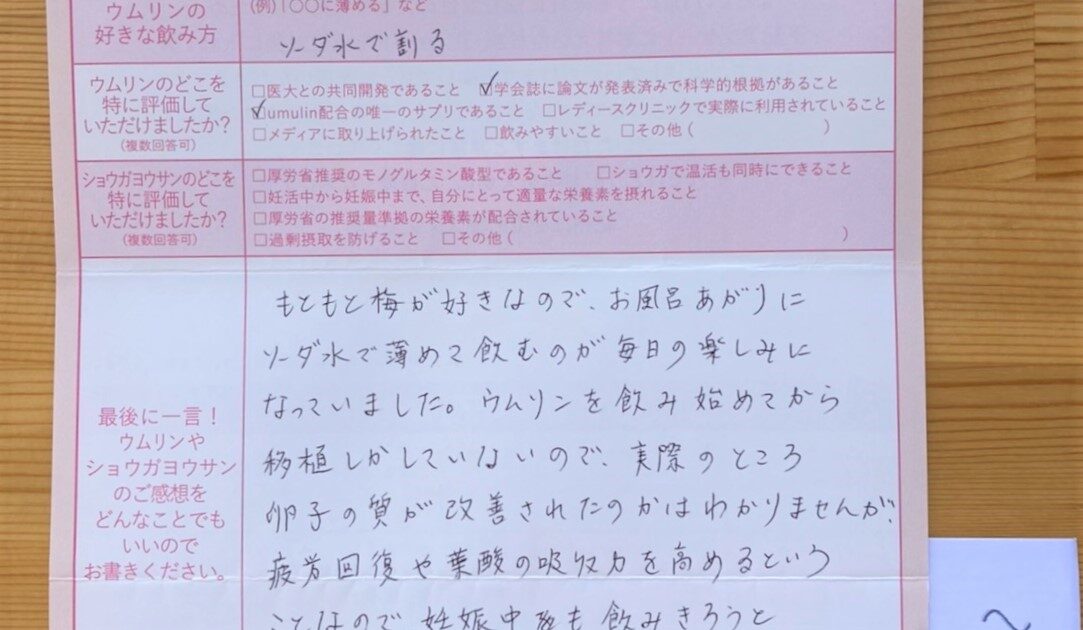 ウムリンの
好きな飲み方
(例)「○○に薄める」など
ソーダ水で割る
ウムリンのどこを
特に評価して
いただけましたか?
(複数回答可)
□医大との共同開発であること ☑学会誌に論文が発表済みで科学的根拠があること
☑umulin配合の唯一のサプリであること □レディースクリニックで実際に利用されていること
□メディアに取り上げられたこと □飲みやすいこと □その他 ( )
ショウガヨウサンのどこを
特に評価して
いただけましたか?
(複数回答可)
□厚労省推奨のモノグルタミン酸型であること □ショウガで温活も同時にできること
□妊活中から妊娠中まで、自分にとって適量な栄養素を摂れること
□厚労省の推奨量準拠の栄養素が配合されていること
□過剰摂取を防げること □その他 ( )
最後に一言!
ウムリンや
ショウガヨウサン
のご感想を
どんなことでも
いいので
お書きください。
もともと梅が好きなので、お風呂あがりに
ソーダ水で薄めて飲むのが毎日の楽しみに
なっていました。ウムリンを飲み始めてから
移植しかしていないので、実際のところ
卵子の質が改善されたのかはわかりませんが、
疲労回復や葉酸の吸収力を高めるという
ことなので、妊娠中も飲みきろうと